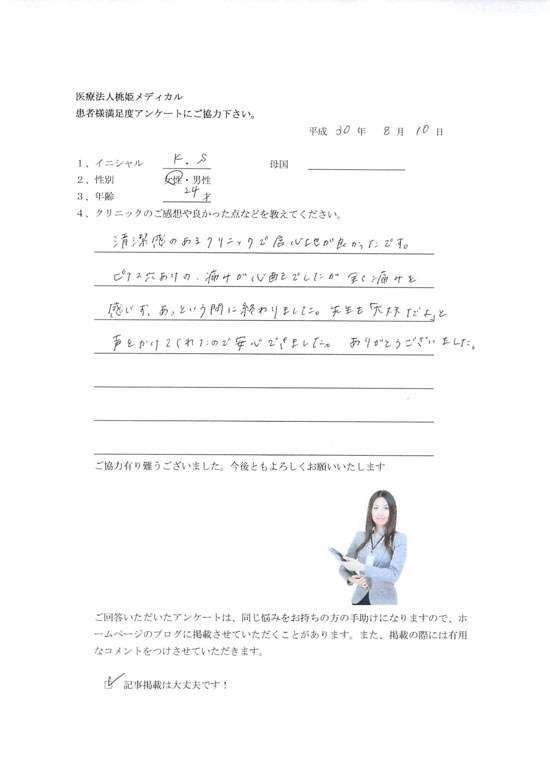 医療法人桃姫メディカル
患者様満足度アンケートにご協力下さい。
平成 30 年 8 月 10 日
1、イニシャル K.S 母国
2、性別 女性・男性
3、年齢 24 才
4、クリニックのご感想や良かった点などを教えてください。
清潔感のあるクリニックで居心地が良かったです。
ピアス穴あけの、痛みが心配でしたが全く痛みを
感じず、あっという間に終わりました。先生も「大丈夫だよ」と
声をかけてくれたので安心できました。ありがとうございました。
ご協力有り難うございました。今後ともよろしくお願いいたします
ご回答いただいたアンケートは、同じ悩みをお持ちの方の手助けになりますので、ホ
ームページのブログに掲載させていただくことがあります。また、掲載の際には有用
なコメントをつけさせていただきます。
記事掲載は大丈夫です！